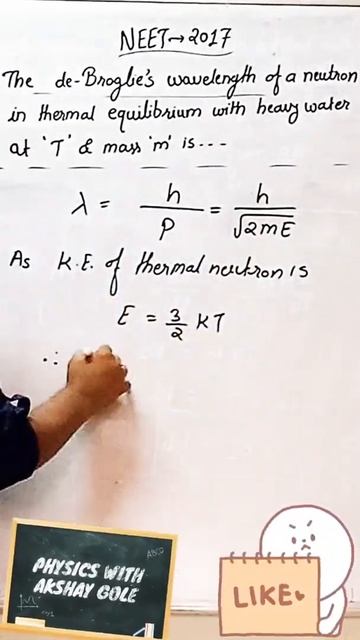 NEET→2017
The de-Broglie's wavelength of a neutron
in thermal equilibrium with heavy water
at 'T' & mass 'm' is---
λ = h/P = h/√2mE
As K.E. of thermal neutron is
E = 3/2 KT
∴
PHYSICS WITH
AKSHAY GOLE
LIKE